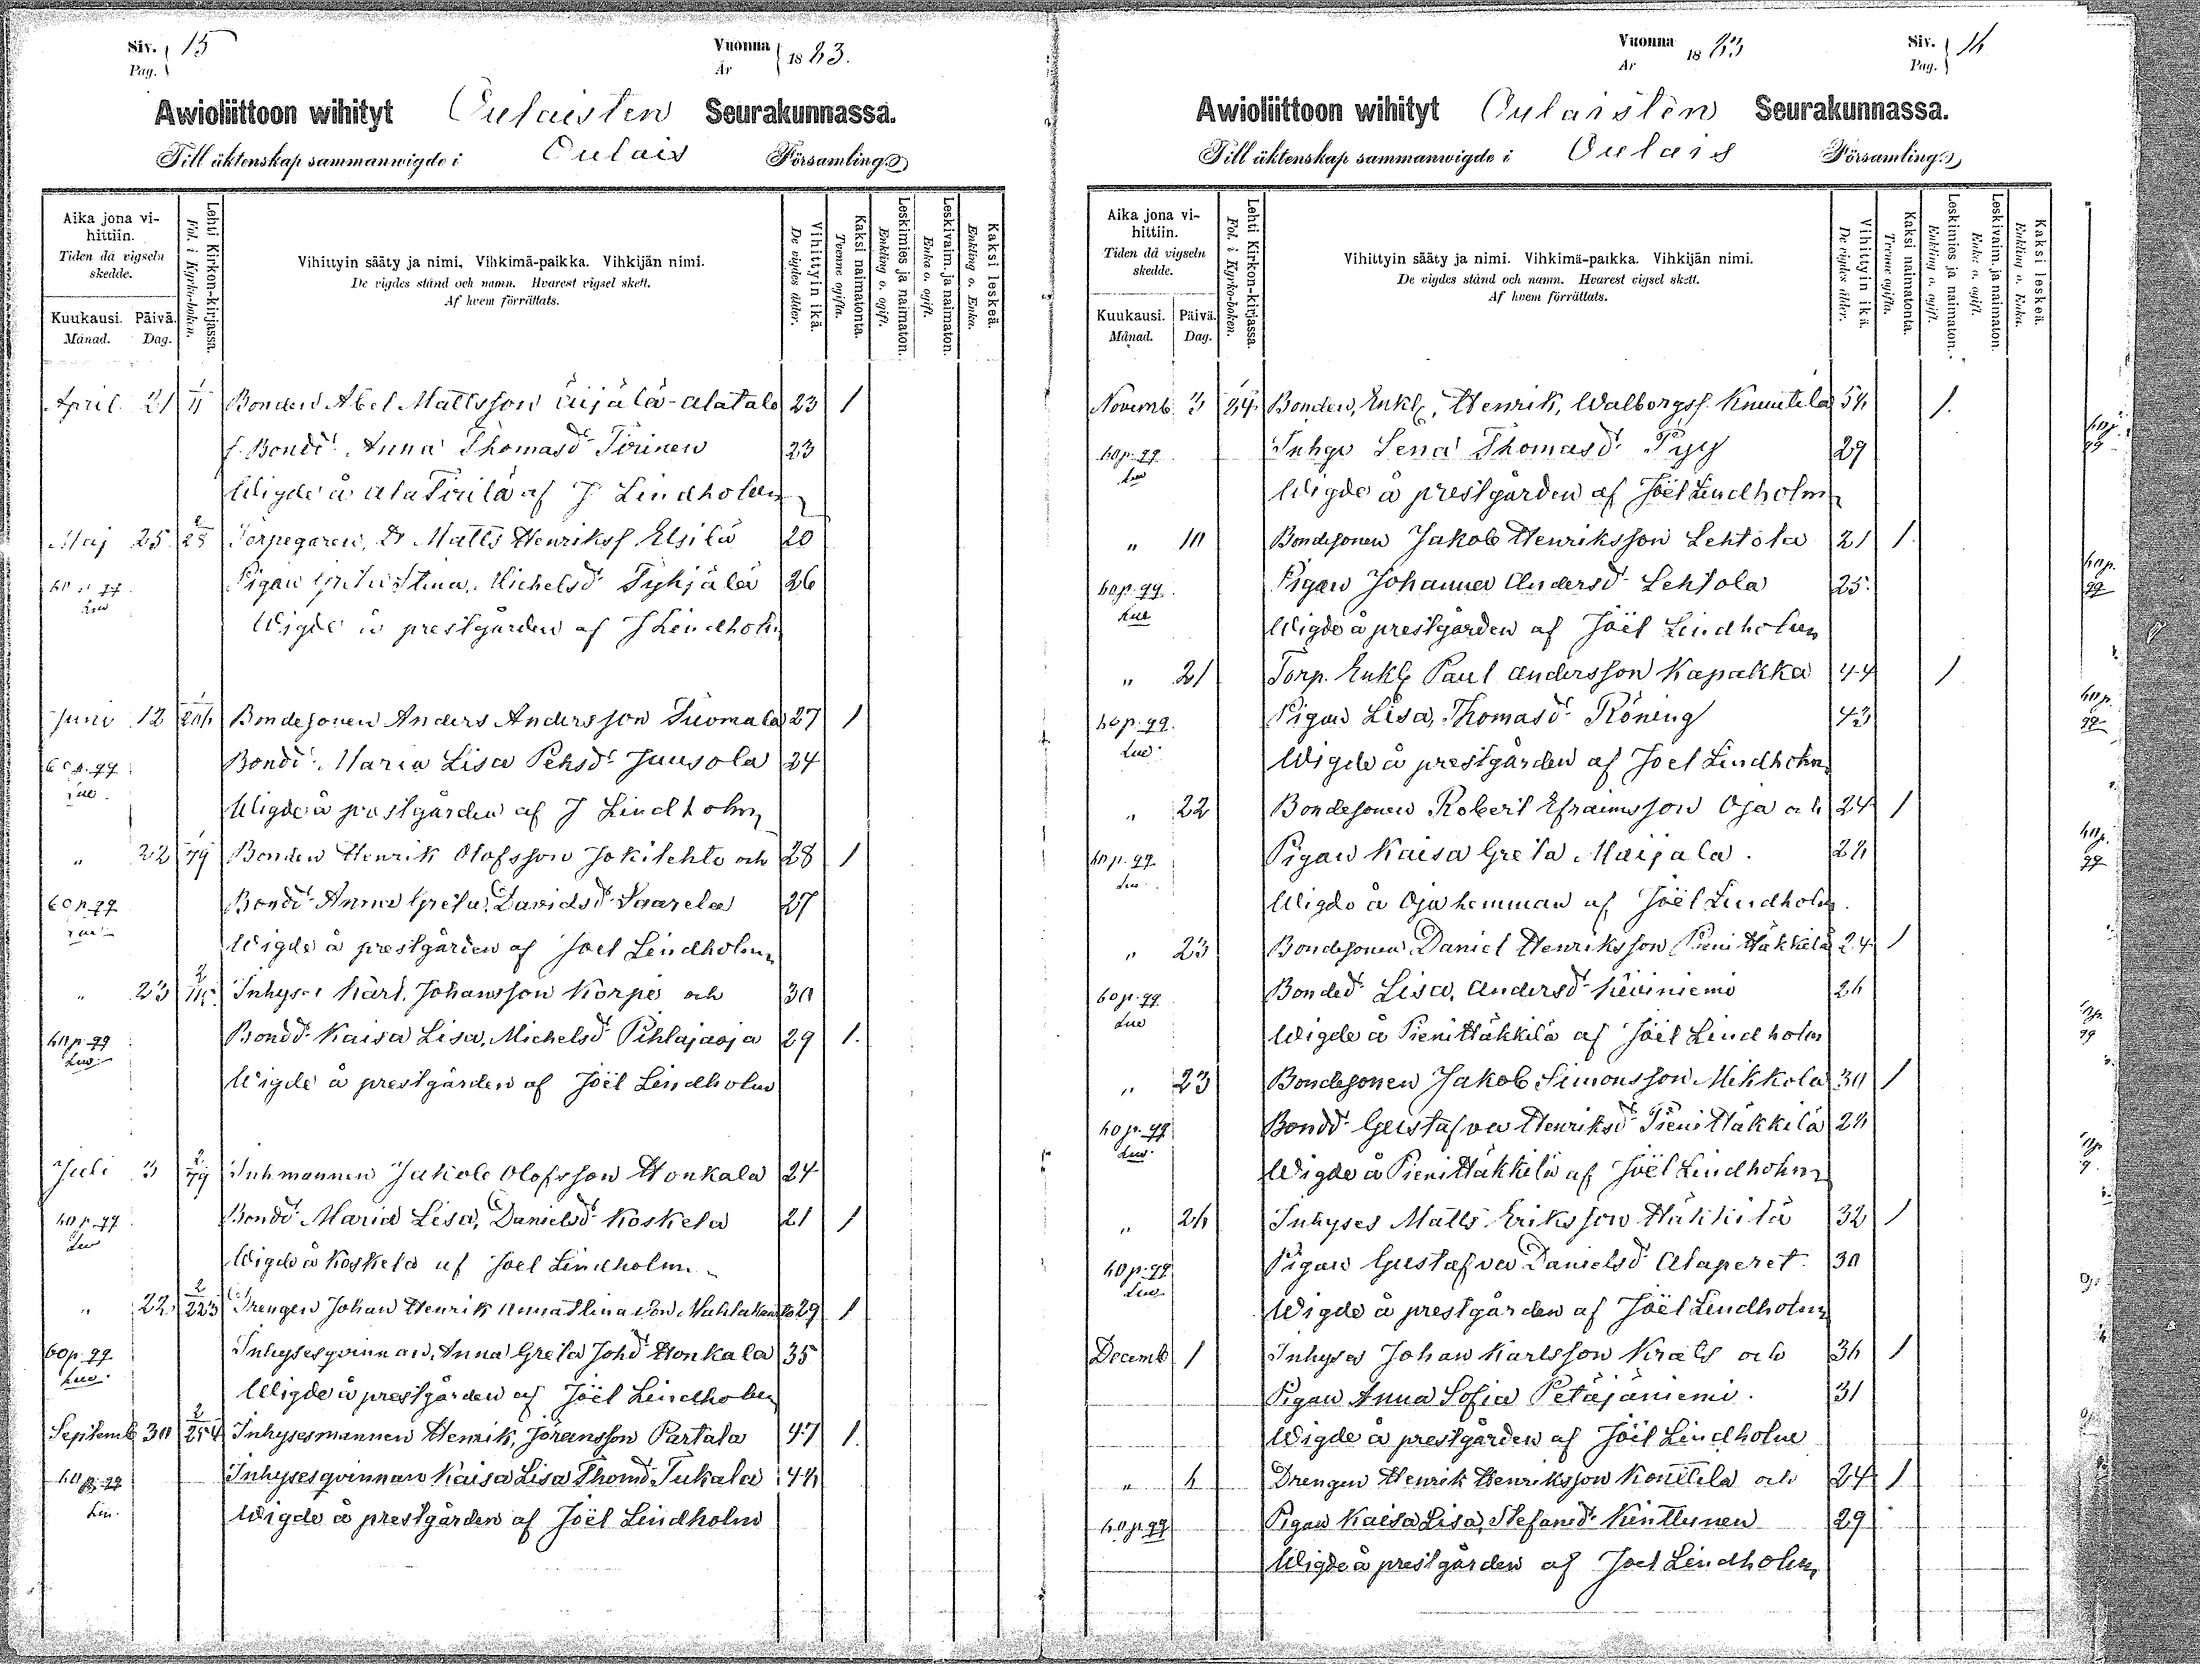 Siv. Pag. 15
Vuonna År 1883.
Awioliittoon wihityt Oulaisten Seurakunnassa.
Till äktenskap sammanwigde i Oulais Församling
Aika jona vihittiin. Tiden då vigseln skedde.
Kuukausi. Månad. Päivä. Dag.
Lehti Kirkon-kirjassa. Fol. i Kyrko-boken.
Vihittyin sääty ja nimi. Vihkimä-paikka. Vihkijän nimi.
De vigdes stånd och namn. Hvarest vigsel skett.
Af hvem förrättats.
Vihittyin ikä. De vigdes ålder.
Kaksi naimatonta. Tvenne ogifta.
Leskimies ja naimaton. Enkling o. ogift.
Leskivaim. ja naimaton. Enka o. ogift.
Kaksi leskeä. Enkling o. Enka.
April 21 Bonden Abel Mattsson Äijälä-Alatalo 23 1
f. Bondd. Anna Thomasd. 23
Wigde å af J Lindholm
Maj 25 Torpegaren, Matts Henrikss Elsilä 20
Pigan Greta Stina, Michelsd. Tyhjälä 26
Wigde å prestgården af J Lindholm
Juni 12 Bondesonen Anders Andersson Tuomala 27 1
Bondd. Maria Lisa Pehsd. Juusola 24
Wigde å prestgården af J Lindholm
" 22 79 Bonden Henrik Olofsson Jokilehto och 28 1
Bondd. Anna Greta, Davidsd. Saarela 27
Wigde å prestgården af Joel Lindholm
" 23 Inhyses Karl Johansson Korpi och 30
Bondd. Kaisa Lisa, Michelsd. Pihlajaoja 29 1.
Wigde å prestgården af Joël Lindholm
Juli 3 2/79 Inhmannen Jakob Olofsson Honkala 24
Bondd. Maria Lisa, Danielsd. Koskela 21 1
Wigde å Koskela af Joel Lindholm
" 22 2/223 Drengen Johan Henrik Annastinason 29 1
Inhysesqvinnan, Anna Greta Johd. Honkala 35
Wigde å prestgården af Joël Lindholm
Septemb 30 2/254 Inhysesmannen Henrik, Jöransson Partala 47 1.
Inhysesqvinnan Kaisa Lisa Thomd. Tukala
Wigde å prestgården af Joël Lindholm
Vuonna År 1883
Siv. Pag. 16
Awioliittoon wihityt Oulaisten Seurakunnassa.
Till äktenskap sammanwigde i Oulais Församling
Aika jona vihittiin. Tiden då vigseln skedde.
Kuukausi. Månad. Päivä. Dag.
Lehti Kirkon-kirjassa. Fol. i Kyrko-boken.
Vihittyin sääty ja nimi. Vihkimä-paikka. Vihkijän nimi.
De vigdes stånd och namn. Hvarest vigsel skett.
Af hvem förrättats.
Vihittyin ikä. De vigdes ålder.
Kaksi naimatonta. Tvenne ogifta.
Leskimies ja naimaton. Enkling o. ogift.
Leskivaim. ja naimaton. Enka o. ogift.
Kaksi leskeä. Enkling o. Enka.
Novemb 3 Bonden, Enkl, Henrik, Walborgss. Knuutila 1.
Inhqv Lena Thomasd. Pyy 29
Wigde å prestgården af Joël Lindholm
" 10 Bondesonen Jakob Henriksson Lehtola 21 1
Pigan Johanna Andersd. Lehtola 25
Wigde å prestgården af Joël Lindholm
" 21 Torp. Enkl Paul Andersson Kapakka 44 1
Pigan Lisa, Thomasd. Röning 43
Wigde å prestgården af Joel Lindholm
" 22 Bondesonen Robert Efraimsson Oja och 24 1
Pigan Kaisa Greta Maijala.
Wigde å Oja hemman af Joël Lindholm.
" 23 Bondesonen Daniel Henriksson Pieni Häkkilä 24 1
Bonded. Lisa, Andersd. 26
Wigde å Pieni Häkkilä af Joël Lindholm
" 23 Bondesonen Jakob Simonsson Mikkola 30 1
Bondd. Gustafva Henriksd. Pieni Häkkilä
Wigde å Pieni Häkkilä af Joël Lindholm
" 26 Inhyses Matts Eriksson Häkkilä 32 1
Pigan Gustafva Danielsd. Alaperet 30
Wigde å prestgården af Joël Lindholm
Decemb 1 Inhyses Johan Karlsson och 36 1
Pigan Anna Sofia Petäjäniemi. 31
Wigde å prestgården af Joël Lindholm
" 6 Drengen Henrik Henriksson och 24 1
Pigan Kaisa Lisa, Stefansd. Kinttunen 29
Wigde å prestgården af Joel Lindholm